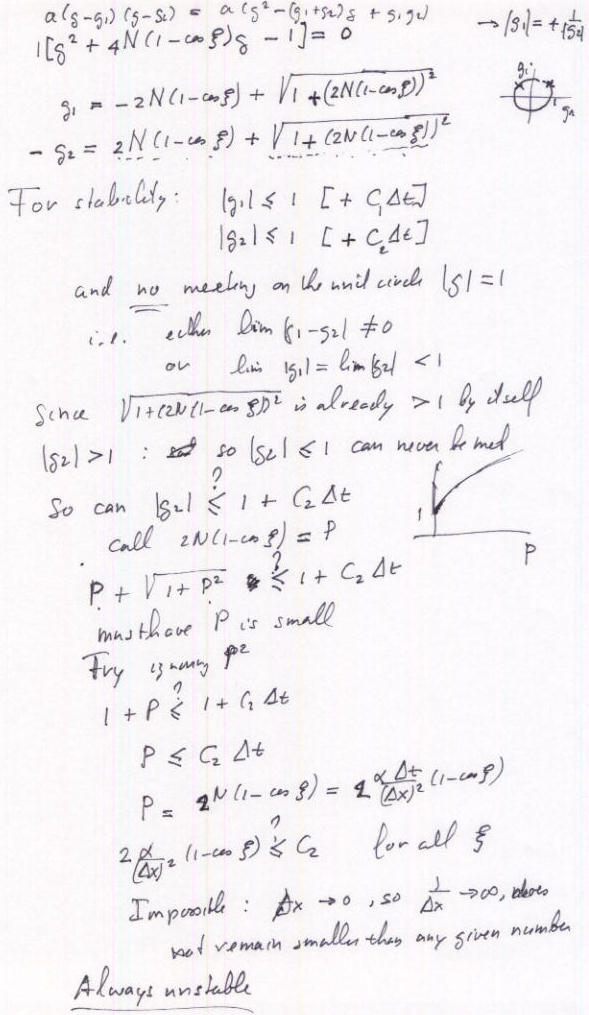 a(g-g₁)(g-g₂) = a(g²-(g₁+g₂)g + g₁g₂)
→ |g₁| = + 1/|g₂|
1[g² + 4N(1-cos ξ)g - 1] = 0
g₁ = -2N(1-cos ξ) + √(1+(2N(1-cos ξ))²)
g₁ g₂ 1
- g₂ = 2N(1-cos ξ) + √(1+(2N(1-cos ξ))²)
For stability: |g₁| ≤ 1 [+ C₁Δt]
|g₂| ≤ 1 [+ C₂Δt]
and no meeting on the unit circle |g| = 1
i.e. either lim |g₁-g₂| ≠ 0
or lim |g₁| = lim |g₂| < 1
Since √(1+(2N(1-cos ξ))²) is already > 1 by itself
|g₂| > 1 : so |g₂| ≤ 1 can never be met
So can |g₂| ≤? 1 + C₂ Δt
call 2N(1-cos ξ) = P
1 P
P + √(1+P²) ≤? 1 + C₂ Δt
must have P is small
Try ignoring P²
1 + P ≤? 1 + C₂ Δt
P ≤ C₂ Δt
P = 2N(1-cos ξ) = 2 αΔt/(Δx)² (1-cos ξ)
2 α/(Δx)² (1-cos ξ) ≤? C₂ for all ξ
Impossible : Δx → 0, so 1/Δx → ∞, does
not remain smaller than any given number
Always unstable